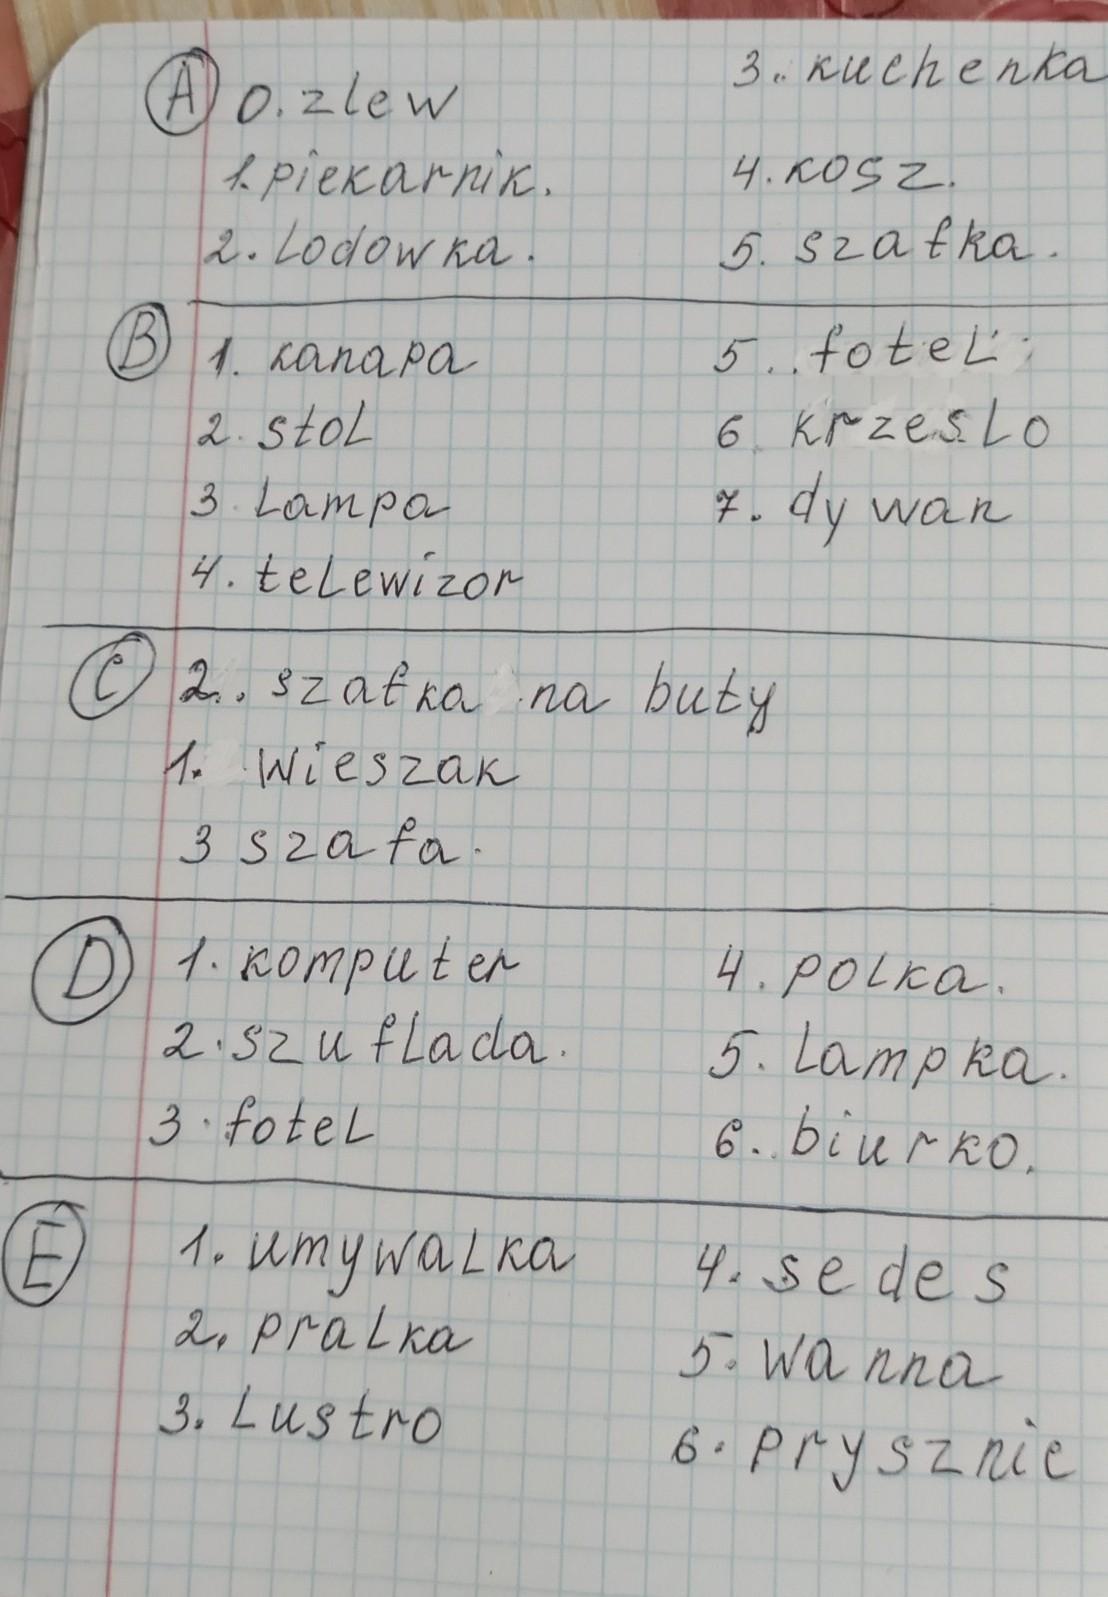 A 0. zlew
1. piekarnik.
2. Lodowka.
3.. kuchenka
4. kosz.
5. szafka.
B 1. kanapa
2. stoL
3. Lampa
4. teLewizor
5.. foteL
6. krzesLo
7. dywan
C 2.. szafka na buty
1. wieszak
3 szafa.
D 1. komputer
2. szufLada.
3. foteL
4. poLka.
5. Lampka.
6.. biurko.
E 1. umywaLka
2. praLka
3. Lustro
4. sedes
5. wanna
6. prysznic